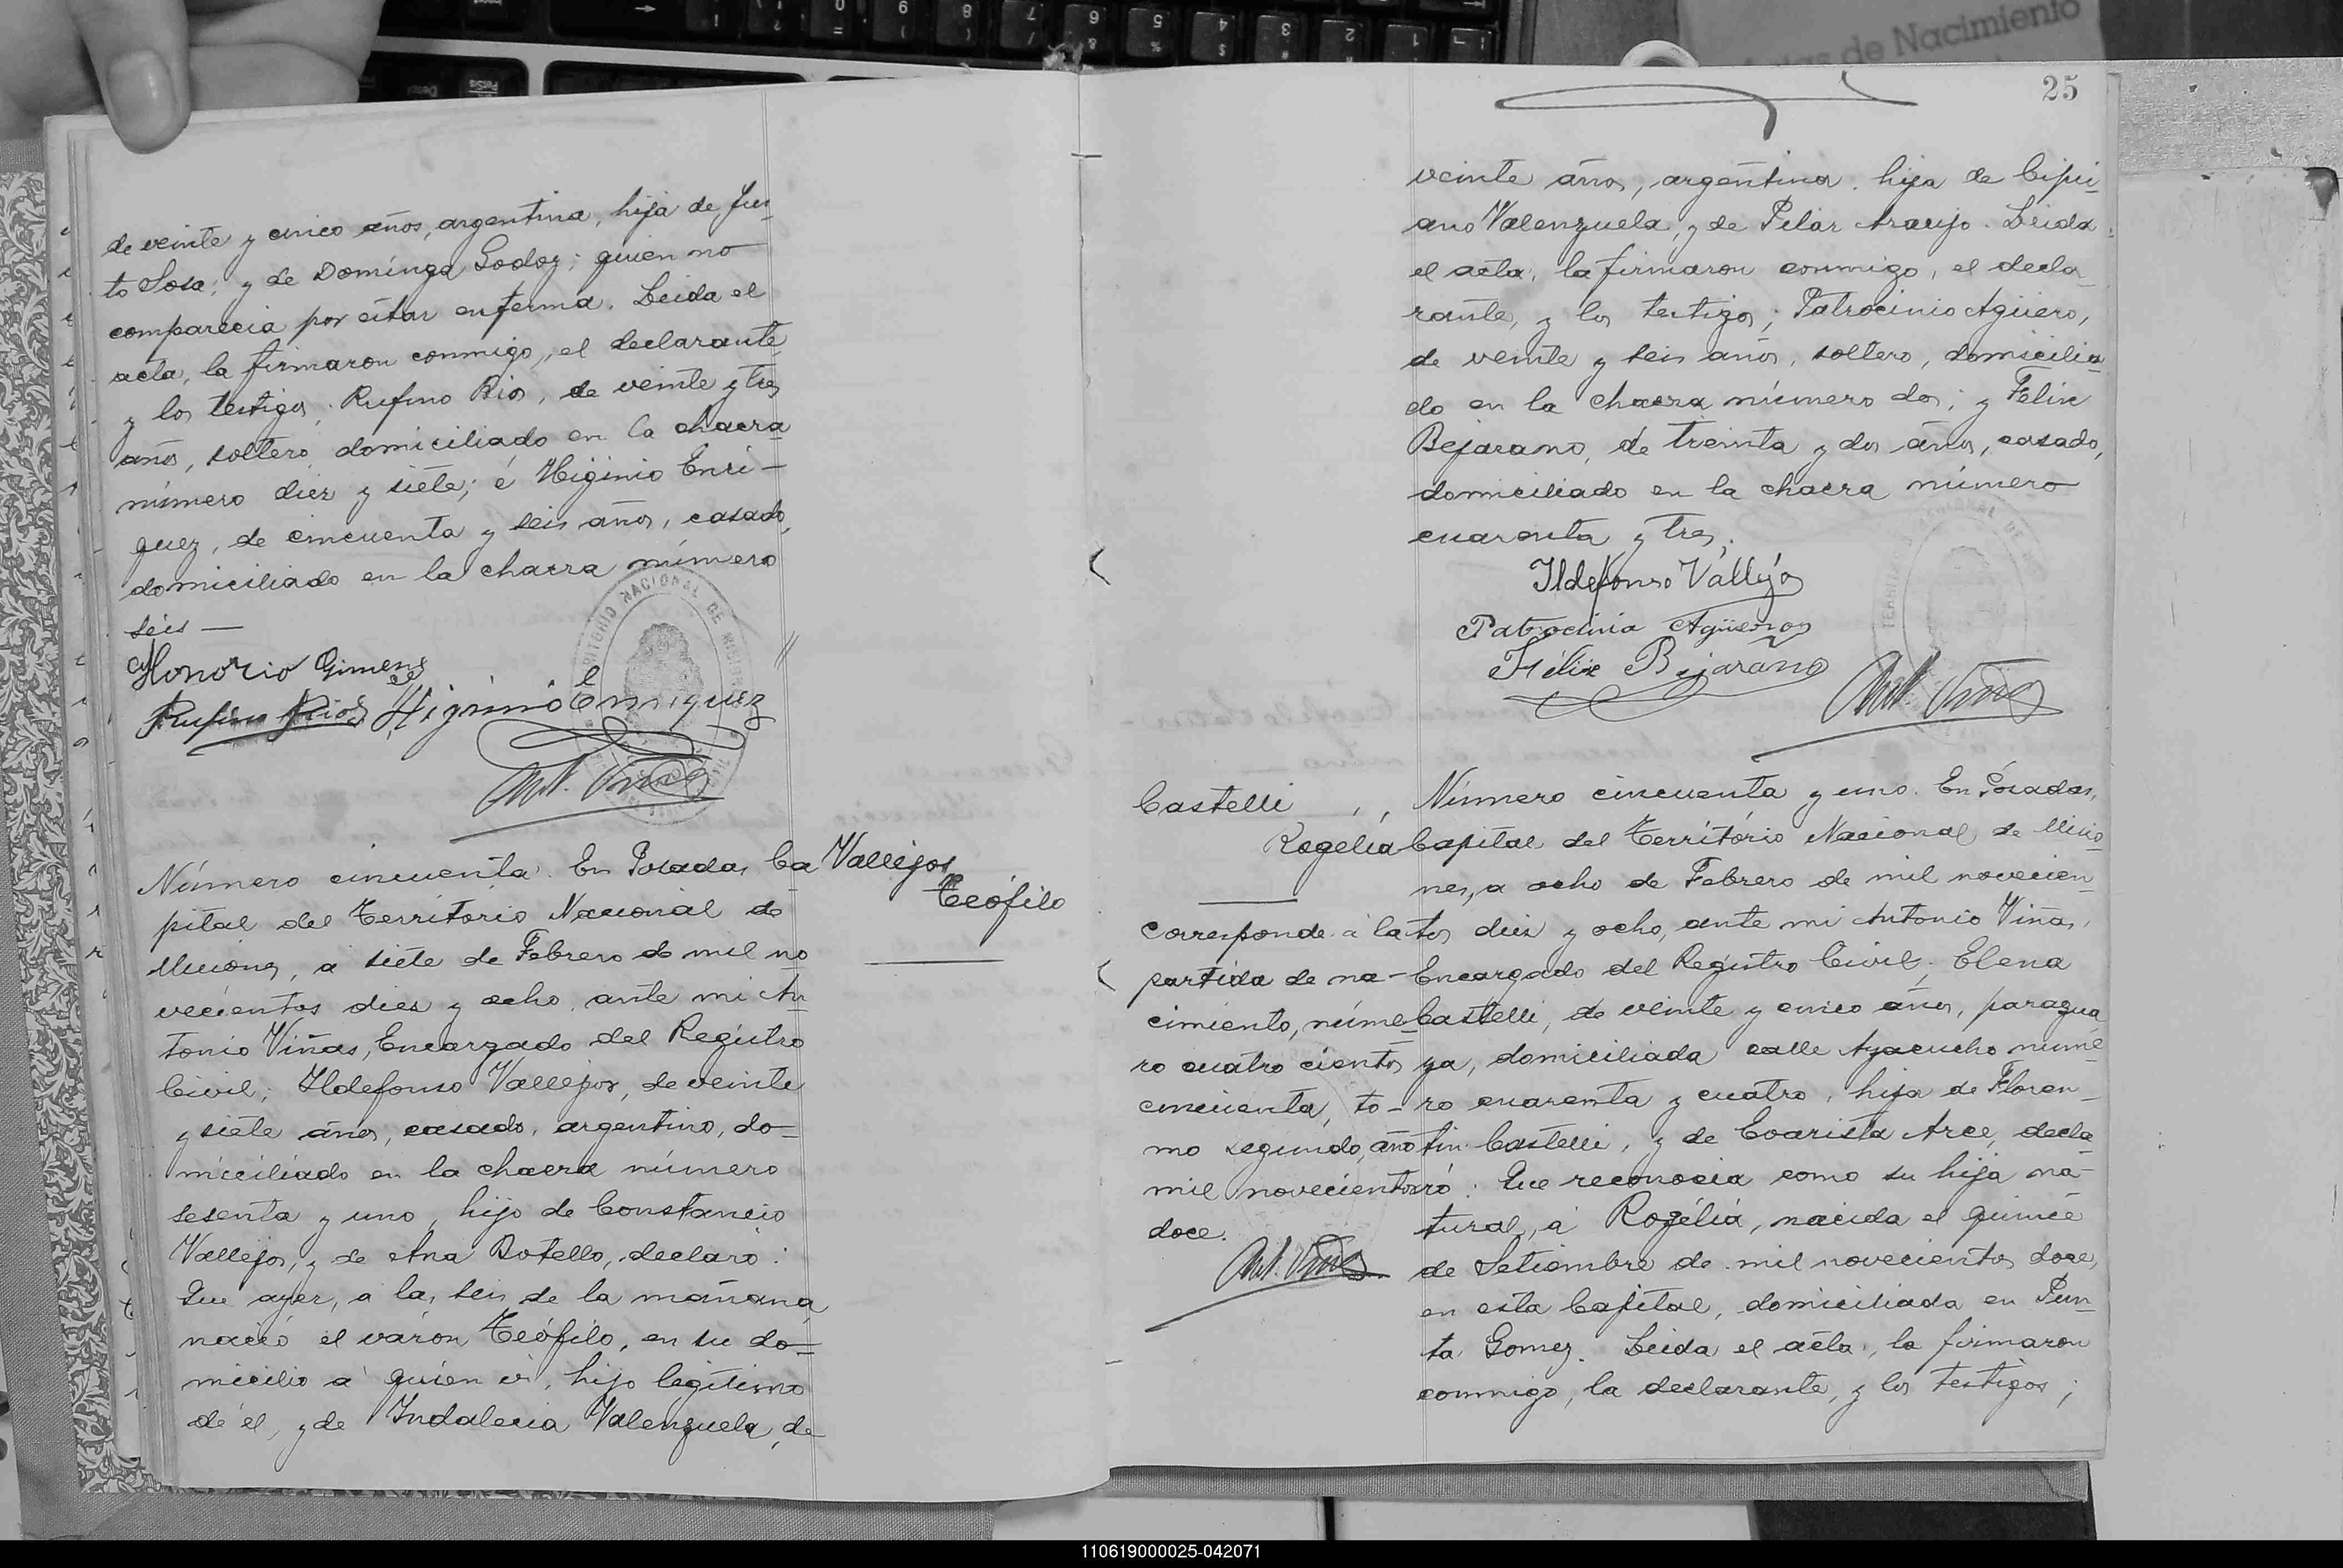 de veinte y cinco años, argentina, hija de Jus_
to Sosa; y de Dominga Godoy; quien no
comparecia por estar enferma. Leida el
acta, la firmaron conmigo, el declarante
y los testigos; Rufino Rios, de veinte y tres
años, soltero, domiciliado en la chacra
número diez y siete; é Higinio Enri-
quez, de cincuenta y seis años, casado,
domiciliado en la chacra número
seis —
Honorio Gimenez
Rufino Rios Higinio Enriquez
Ant. Viñas
Número cincuenta. En Posadas, Ca
pital del Territorio Nacional de
Misiones, a siete de Febrero de mil no
vecientos diez y ocho, ante mi An
tonio Viñas, Encargado del Registro
Civil; Ildefonso Vallejos, de veinte
y siete años, casado, argentino, do-
miciliado en la chacra número
sesenta y uno, hijo de Constancio
Vallejos, y de Ana Botello, declaró:
Que ayer, a las seis de la mañana
nació el varon Teófilo, en su do=
micilio a quien es, hijo legítimo
de él, y de Indalecia Valenzuela, de
Vallejos
Teófilo
25
veinte años, argentina, hija de Cipri_
ano Valenzuela, y de Pilar Araujo. Leida
el acta, la firmaron conmigo, el decla_
rante, y los testigos; Patrocinio Agüero,
de veinte y seis años, soltero, domicilia
do en la chacra número dos; y Felix
Bejarano, de treinta y dos años, casado,
domiciliado en la chacra número
cuarenta y tres.
Ildefonso Vallejos
Patrocinio Agüero
Félix Bejarano
Ant. Viñas
Castelli
Rogelia
corresponde a la
partida de na-
cimiento, núme-
ro cuatro cientos
cincuenta, to-
mo segundo, año
mil novecientos
doce.
Ant. Viñas
Número cincuenta y uno. En Posadas,
Capital del Territorio Nacional de Misio
nes, a ocho de Febrero de mil novecien_
tos diez y ocho, ante mi Antonio Viñas,
Encargado del Registro Civil; Elena
Castelli, de veinte y cinco años, paragua
ya, domiciliada calle Ayacucho núme
ro cuarenta y cuatro, hija de Floren_
tin Castelli, y de Evarista Arce, decla
ró: Que reconocia como su hija na-
tural, a Rogelia, nacida el quince
de Setiembre de mil novecientos doce,
en esta Capital, domiciliada en Pun_
ta Gomez. Leida el acta, la firmaron
conmigo, la declarante, y los testigos;
110619000025-042071